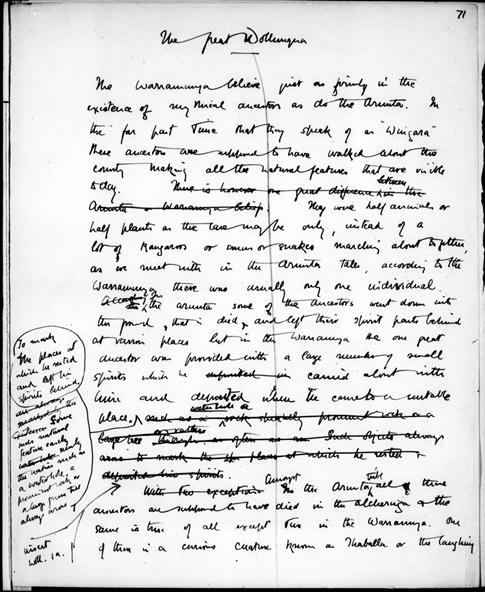 71
The Great Wollunqua
The Warramunga believe just as firmly in the
existence of mythical ancestors as do the Arunta. In
the far past Time that they speak of as "Wingara"
these ancestors are supposed to have walked about the
country making all the natural features that are visible
today. There is however one great difference between the
Arunta & Warramunga beliefs. They were half animals or
half plants as the case may be only, instead of a
lot of Kangaroos or emus or snakes marching about together,
as we meet with in the Arunta tales, according to the
Warramunga there was usually only one individual.
the Arunta some of the ancestors went down into
the ground, that is died, and left their spirit parts behind
at various places but in the Warramunga the one great
ancestor was provided with a large number of small
spirits which he deposited in carried about with
him and deposited where he came to a suitable
place. such as a water hole a specially prominent rock or a
large tree
arose to mark the places at which he rested &
deposited his spirits.
With two exceptions Amongst the Arunta all these
ancestors are supposed to have died in the alcheringa & the
same is true of all except two in the Warramunga. One
of them is a curious creature known as Thaballa or the laughing
To mark
the places at
which he rested
and left his
spirits behind
some
natural
feature
such as
a waterhole, a
prominent rock or
a large gum tree
always arose
insert